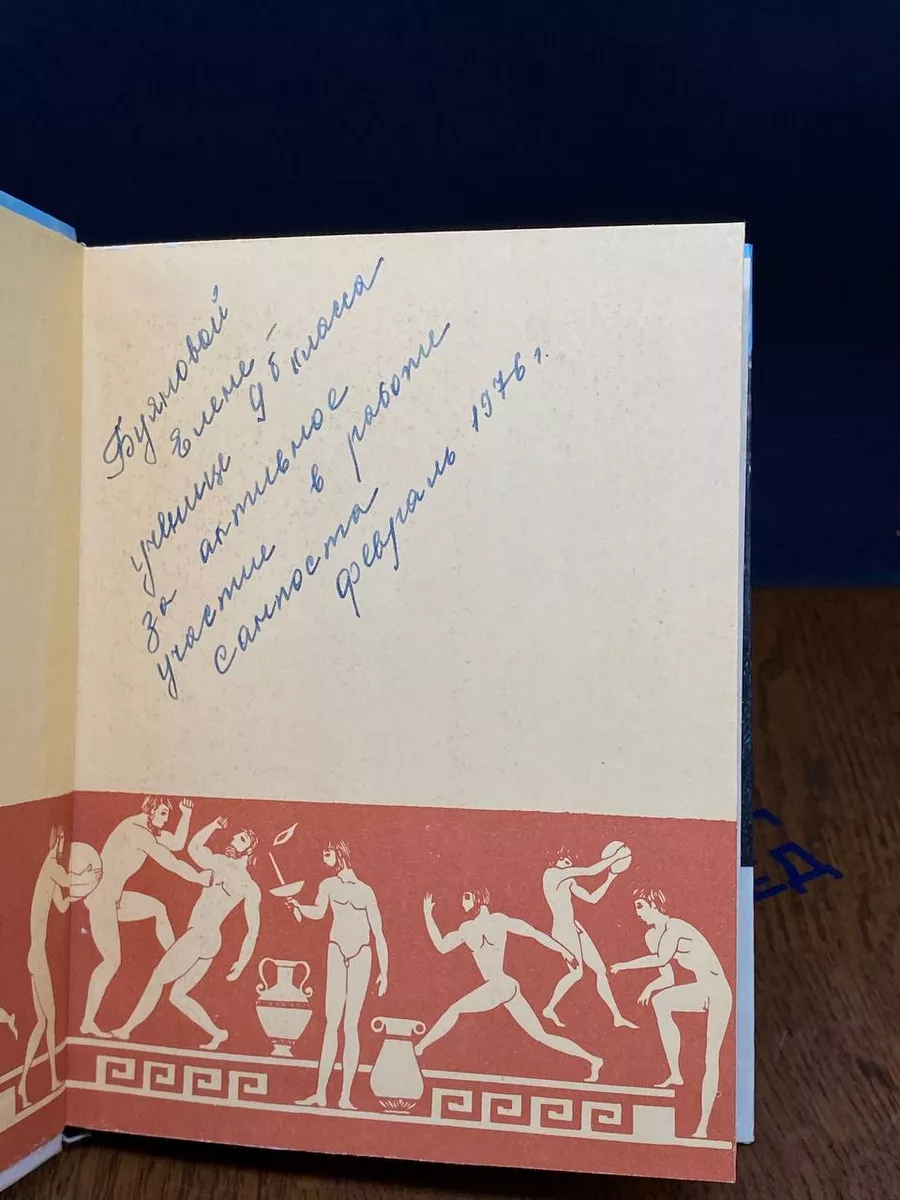 Буяновой
Елене –
ученице 9б класса
за активное
участие в работе
санпоста
февраль 1976 г.
ЕД